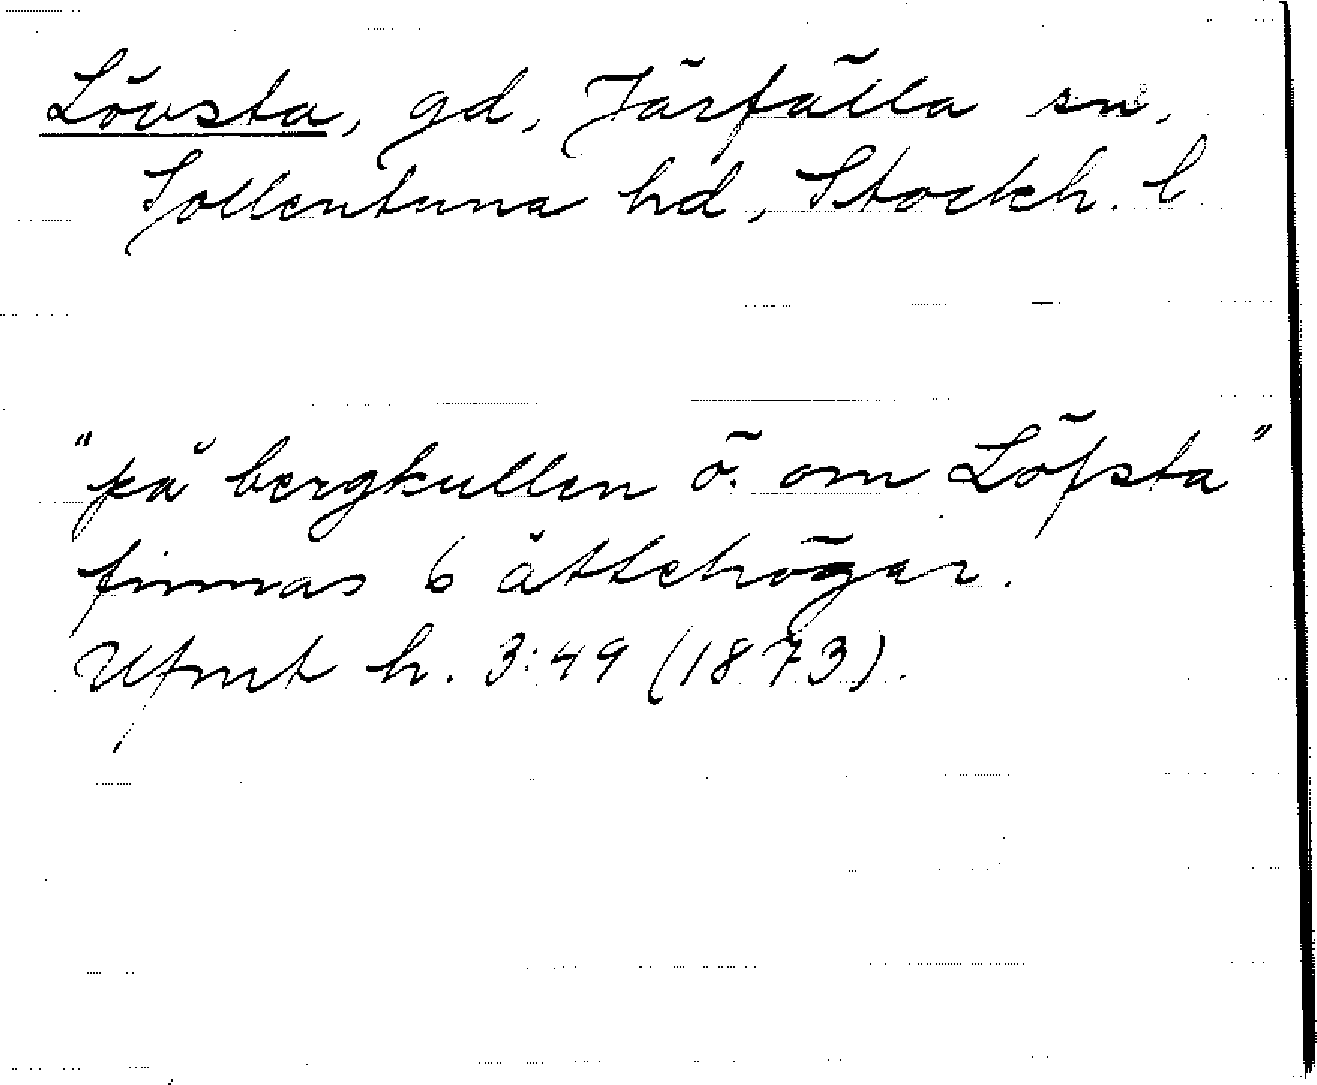 Lövsta, gd, Järfälla sn,
Sollentuna hd, Stockh. l
"på bergkullen ö. om Löfsta"
finnas 6 ättehögar.
Ufmt h. 3:49 (1873).